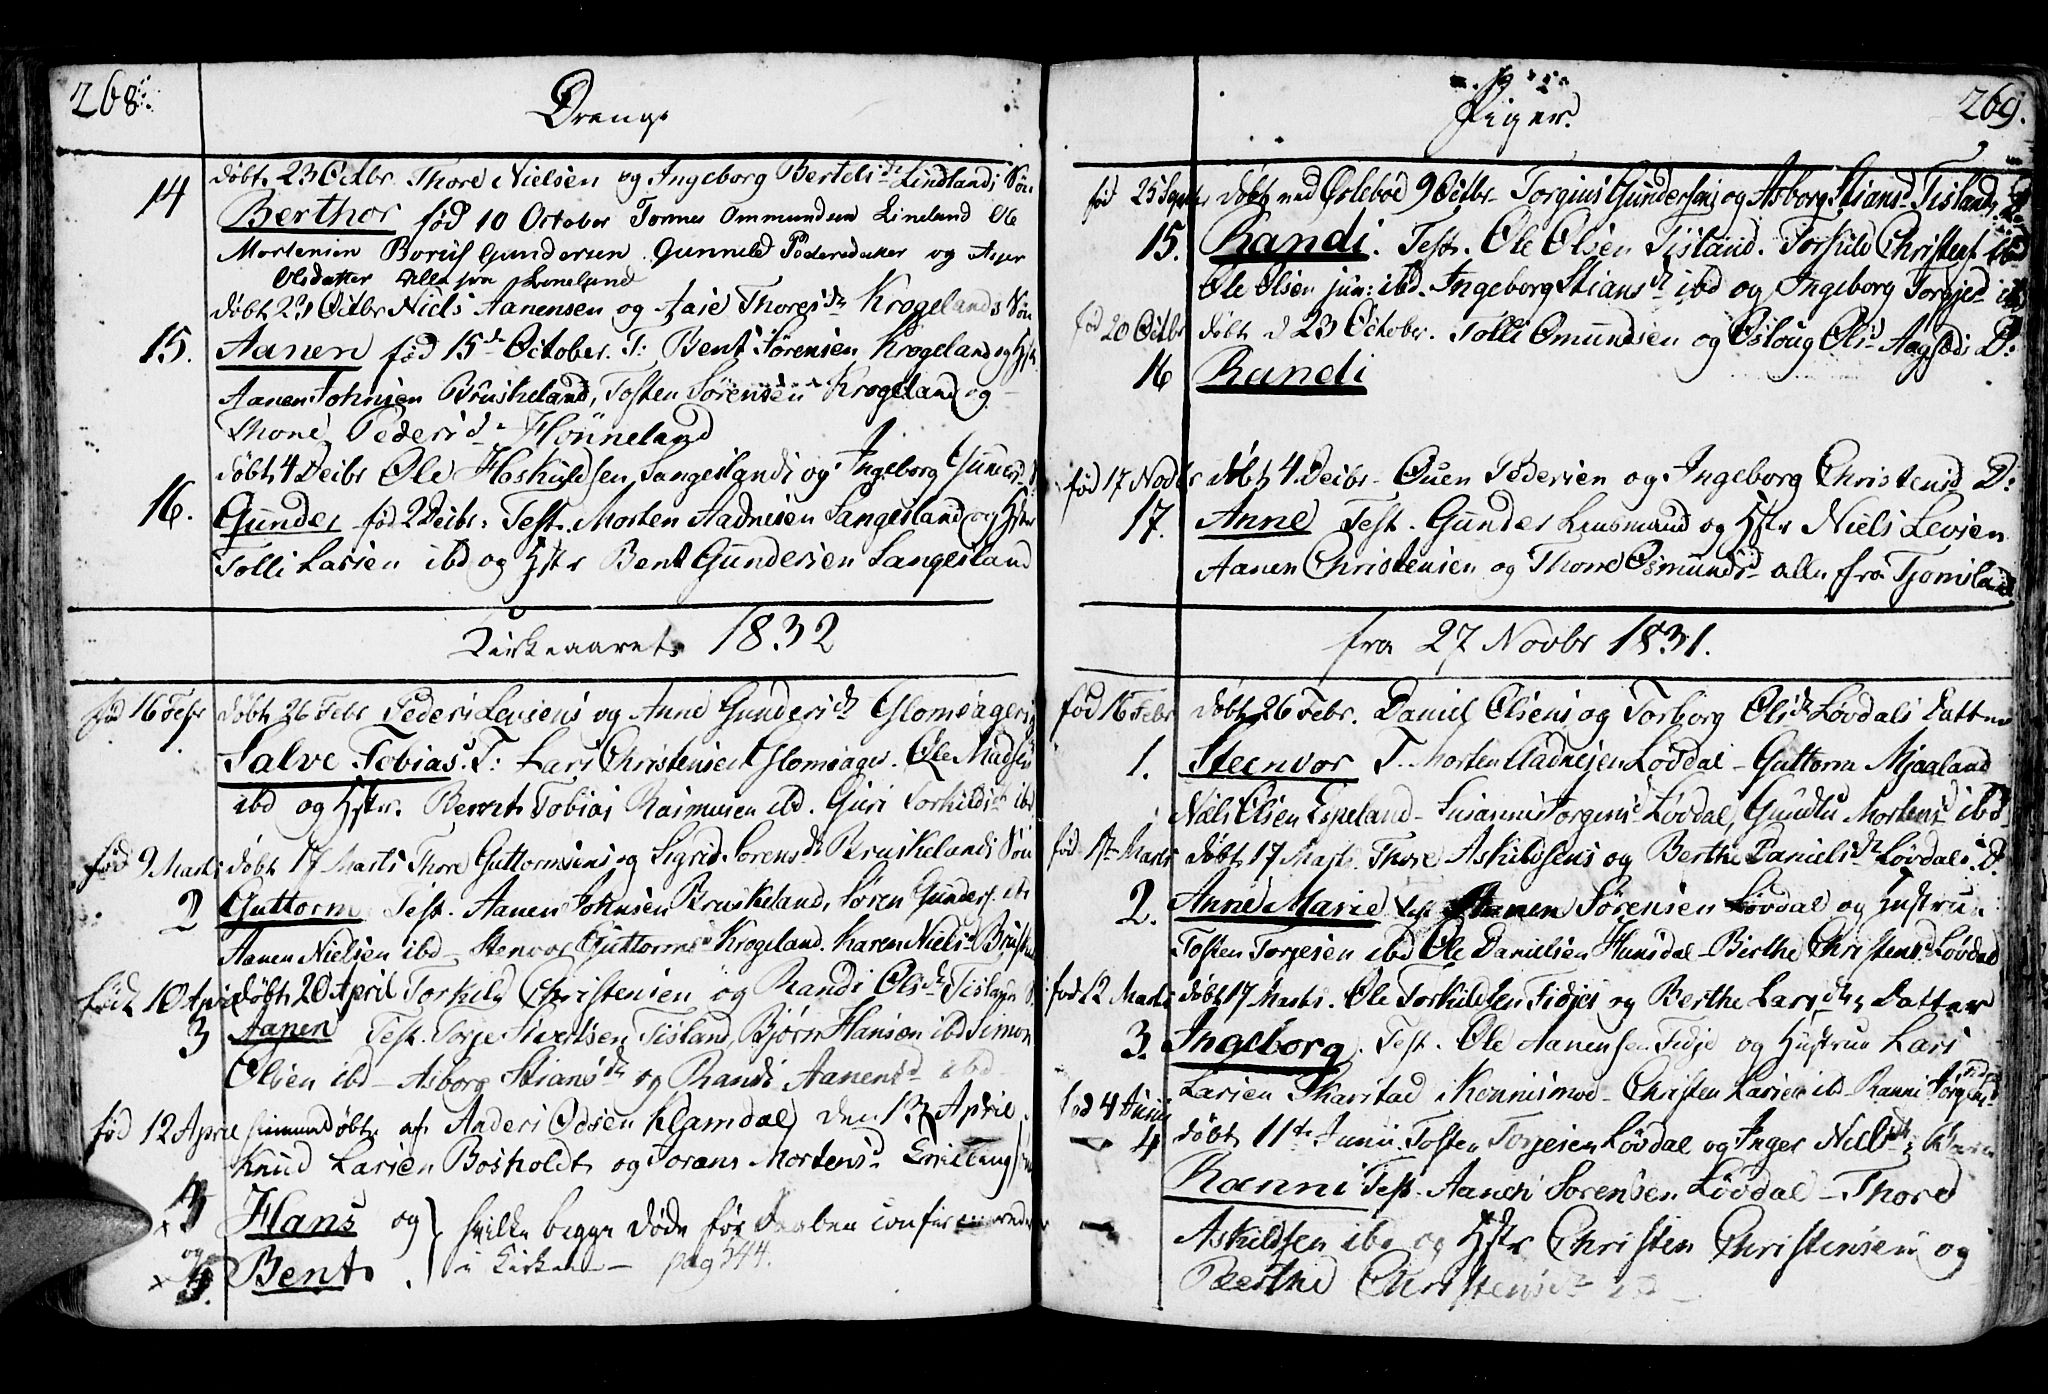 268.
Drenge
døbt 23 Octbr. Thore Nielsen og Ingeborg Bertelsdr Lindlands Søn
14 Berthor fød 10 October Tormes Ommundsen Lineland Ole
Mortensen Gundersen Gunneld Pedersdatter og Asper
Olsdatter alle fra Lineland
døbt 23 Octbr Niels Aanensen og Thoresdr Krogelands Søn
15. Aanen fød 15de October. T: Bent Sørensen Krogeland og Hstr.
Aanen Johnsen Bruskeland, Tosten Sørensen Krogeland og
Thone Pedersd. Hønneland
døbt 4 Decbr Ole Haskuldsen Sangeslands og Ingeborg Gunders
16. Gunder fød 2 Decbr. Test. Morten Aadnesen Sangesland og Hstr
Tolli Larsen ibd og Hstr Bent Gundersen Sangesland
Kirkeaaret 1832
fød 16 Febr døbt 26 Febr Peder Levsens og Anne Gundersdr Glomsagers
1. Salve Tobias. T: Lars Christensen Glomsager. Ole Madsen
ibd og Hstr. Bernt Tobias Rasmusen ibd. Guri Torkildsdr ibd
fød 9 Marts døbt 17 Marts Thore Guttormsens og Sigrid Sørensdr Bruskelands Søn
2 Guttorm Test. Aanen Johnsen Bruskeland, Søren Gunders.
Aanen Nielsen ibd – Stenvor Guttormsd Krogeland. Karen Nielsd
født 10 April døbt 20 April Torkild Christensen og Randi Olsdr Tisland
3 Aanen Test. Torje Sivertsen Tisland Bjørn Hansen ibd Simon
Olsen ibd – Asborg Stiansdr og Randi Aanensd ibd
fød 12 April hjemmedøbt af Anders Odsen Kleamdal den 13 April
Knud Larsen Bosholdt og Torans Mortensd
x Hans og } hvilke begge døde før Daaben
og
x Bent } i Kirken – pag 544.
269.
Piger.
fød 25 Septbr døbt ved Øslebøe 9 Octbr Torgius Gundersens og Asborg Stiansd Tislands D.
15. Randi. Test. Ole Olsen Tisland. Torkild Christens. ibd
Ole Olsen jun: ibd. Ingeborg Stiansdr ibd og Ingeborg Torgjed ibd
fød 20 Octbr døbt d 23 October. Tolli Omundsen og Osloug Olsd Aagsæds D:
16 Randi
fød 17 Novbr døbt 4 Decbr – Ouen Pedersen og Ingeborg Christensd D:
17. Anne Test. Gunder Lensmand og Hstr Niels Levsen
Aanen Christensen og Thore Osmundsd alle fra Tjomsland
fra 27 Novbr 1831.
fød 16 Febr døbt 26 Febr. Daniel Olsens og Torborg Olsdr Løvdals Datter
1. Steenvor T. Morten Aadnesen Løvdal – Guttorm Mjaaland
Niels Olsen Espeland – Susanne Jorgensd Løvdal, Mortensd ibd
fød Marts døbt 17 Marts Thore Askildsens og Berthe Danielsdr Løvdals D.
2. Anne Marie Test Aanen Sørensen Løvdal og Hustrue
Tosten Torjesen ibd Ole Danielsen Hunsdal – Birthe Christensd. Løvdal
fød 12 Marts døbt 17 Marts. Ole Torkildsen Fidjes og Berthe Larsdrs Datter
3. Ingeborg. Test. Ole Aanensen Fidje og Hustrue Lars
Larsen Skarstad i Kennismoe – Christen Larsen ibd – Ranni Jorgens Fidje
fød 4 Junii
4 døbt 11te Junii. Tosten Torjesen Løvdal og Inger Nielsdr
Ranni Test. Aanen Sørensen Løvdal – Thore
Askildsen ibd og Hstr Christen Christensen og
Berthe Christensdr ibd –